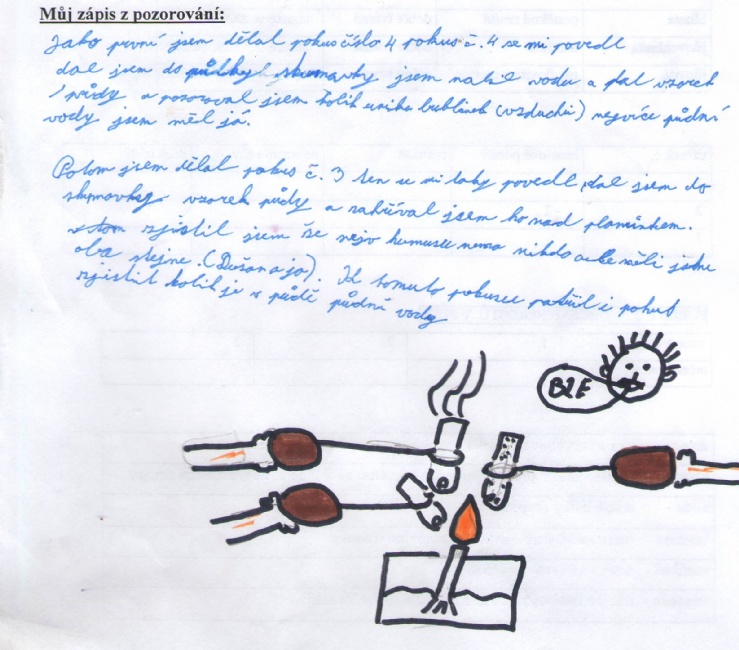 Můj zápis z pozorování:
Jako první jsem dělal pokus číslo 4 pokus č. 4 se mi povedl
dal jsem do půlky skumavky jsem nalil vodu a dal vzorek
půdy a pozoroval jsem kolik unika bublinek (vzduchu) nejvíce půdní
vody jsem měl já.
Potom jsem dělal pokus č. 3 ten se mi taky povedl dal jsem do
skumavky vzorek půdy a zahříval jsem ho nad plamínkem.
zjistil jsem že nejv humusu nema nikdo měli jsme
oba stejne. (Dušan a ja). K tomuto pokusu patřil i pokus
zjistit kolik je v půdě půdní vody
BLE